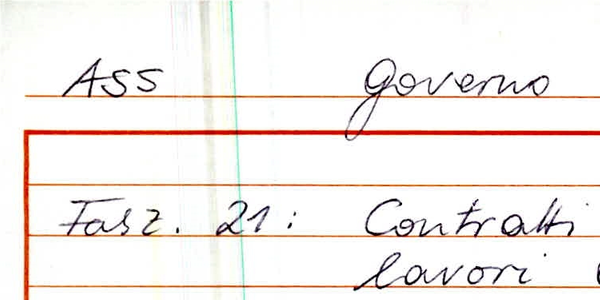 Ass Governo
Fasz. 21: Contratti
lavori